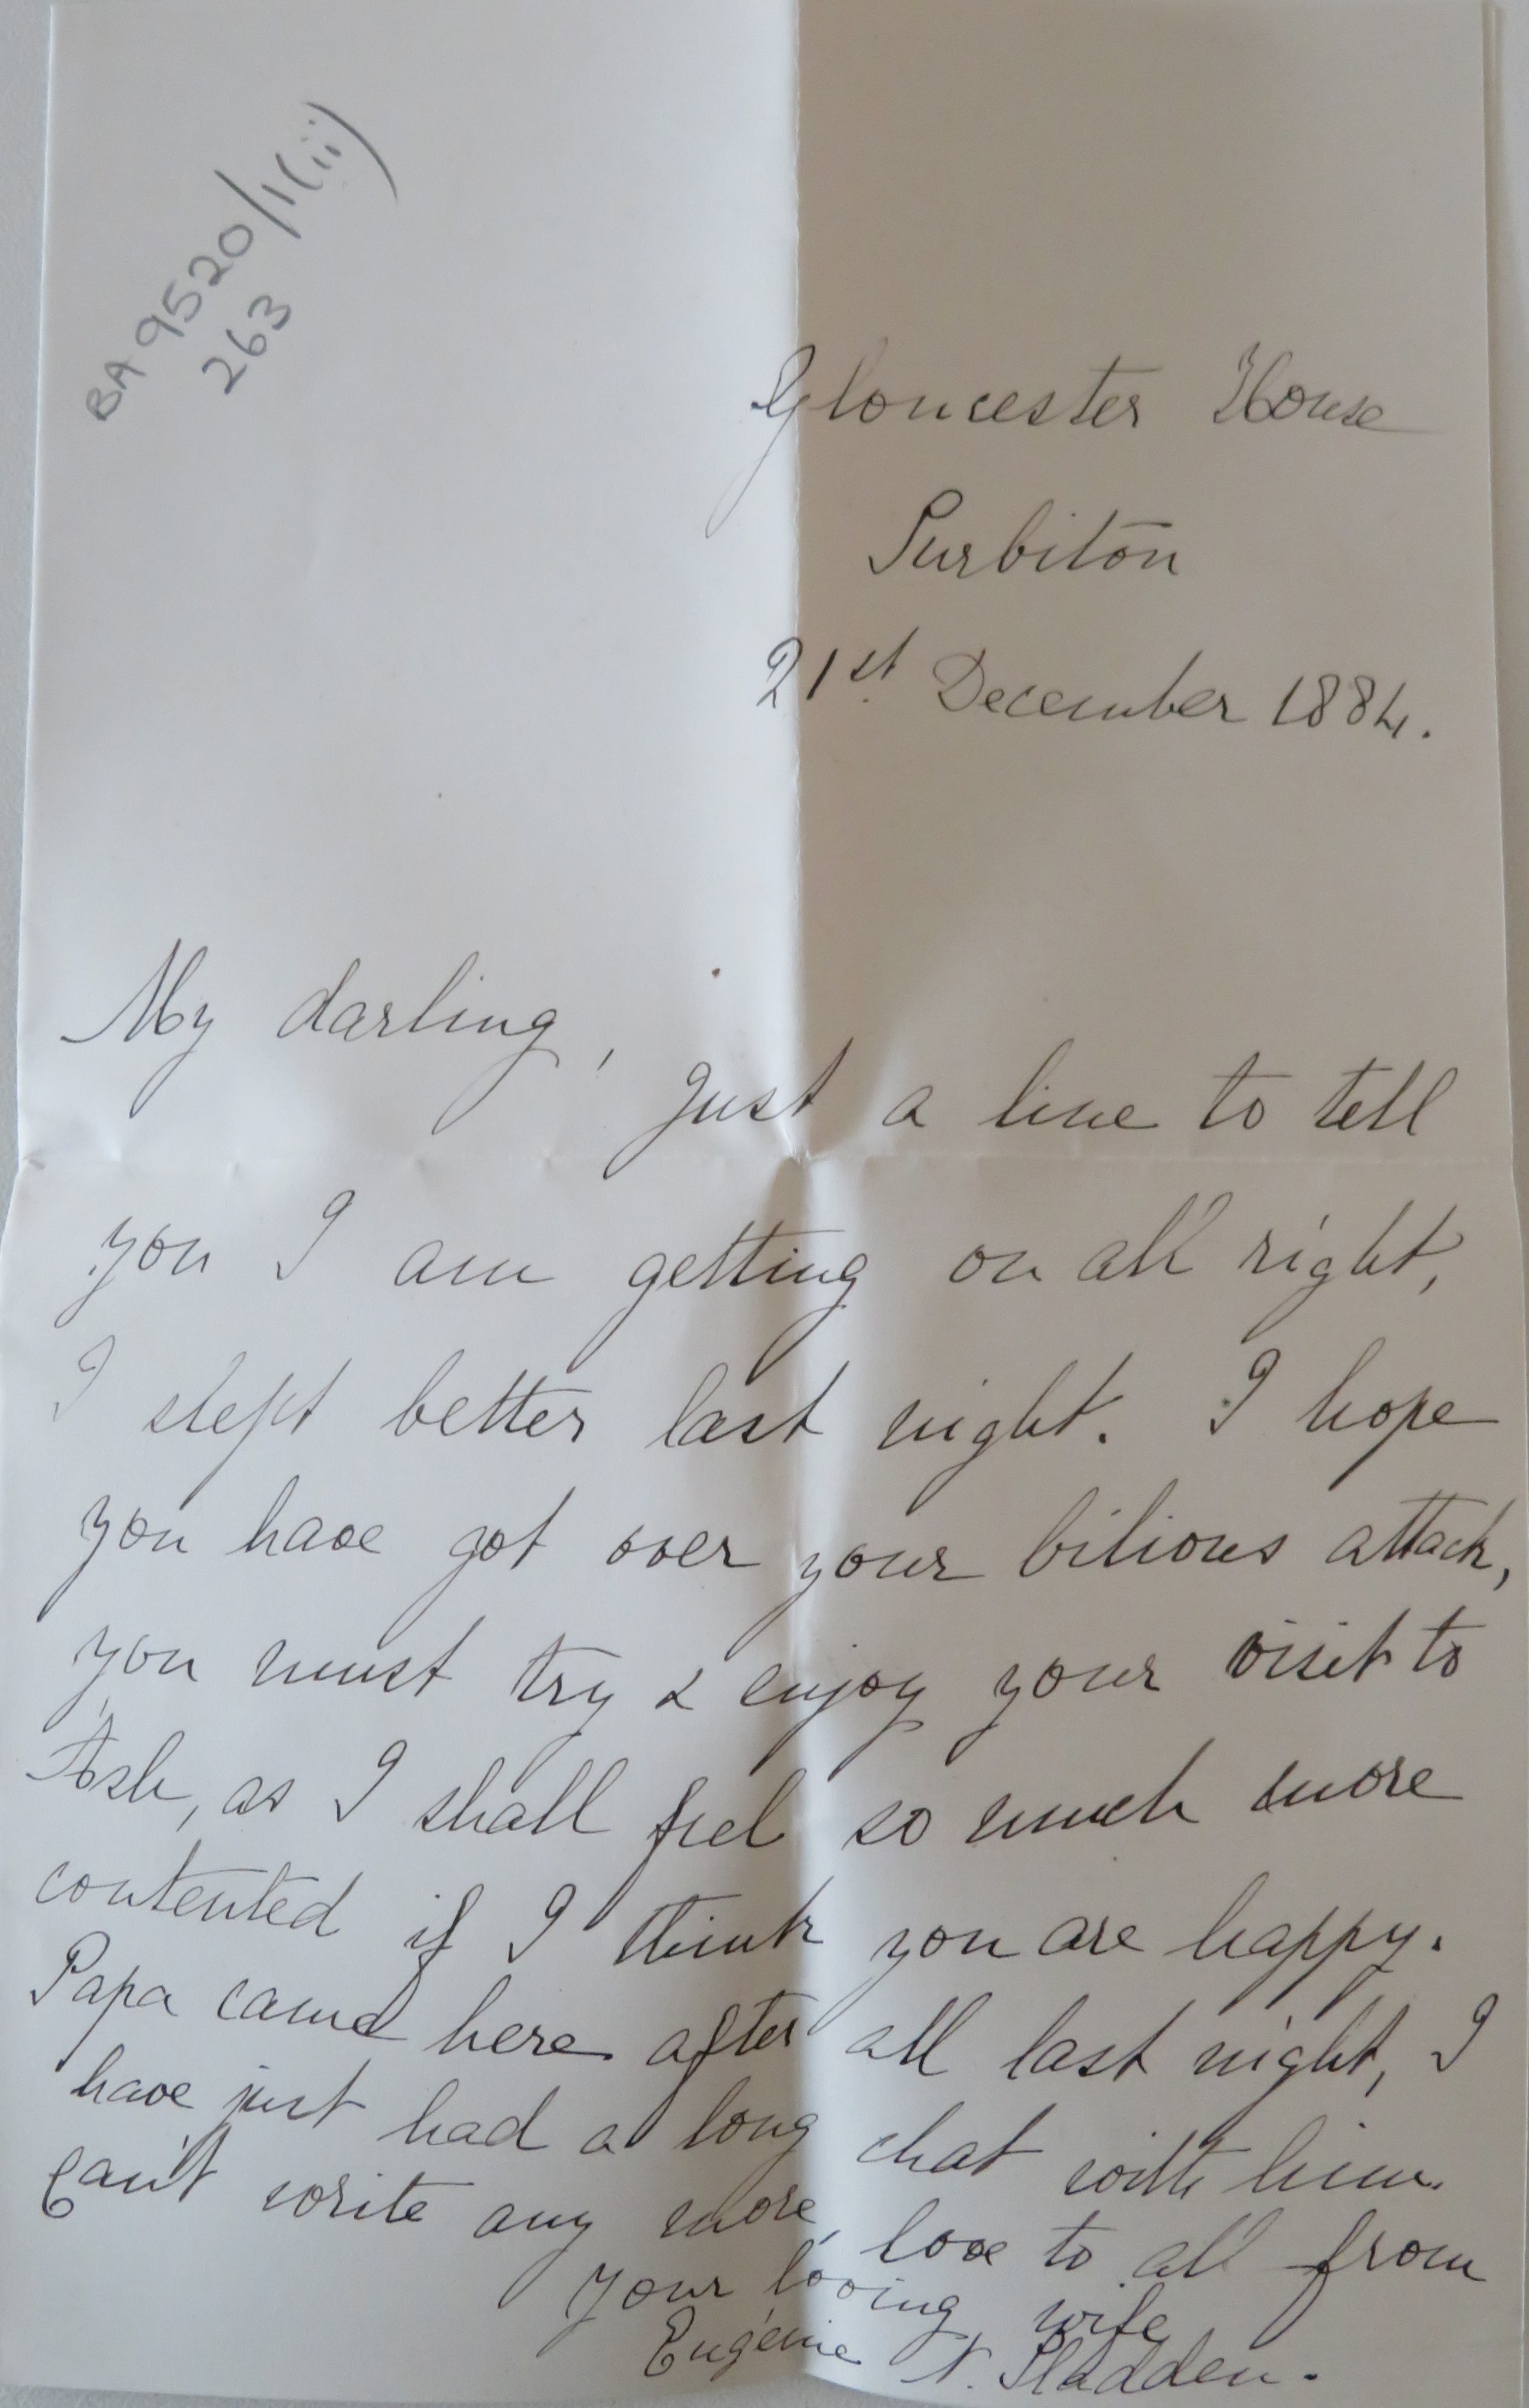 BA 9520/1(ii)
263
Gloucester House
Surbiton
21st December 1884.
My darling,
Just a line to tell
you I am getting on all right,
I slept better last night. I hope
you have got over your bilious attack,
you must try & enjoy your visit to
Ash, as I shall feel so much more
contented if I think you are happy.
Papa came here after all last night, I
have just had a long chat with him.
Can't write any more, love to all from
your loving wife
Eugénie N. Sladden.